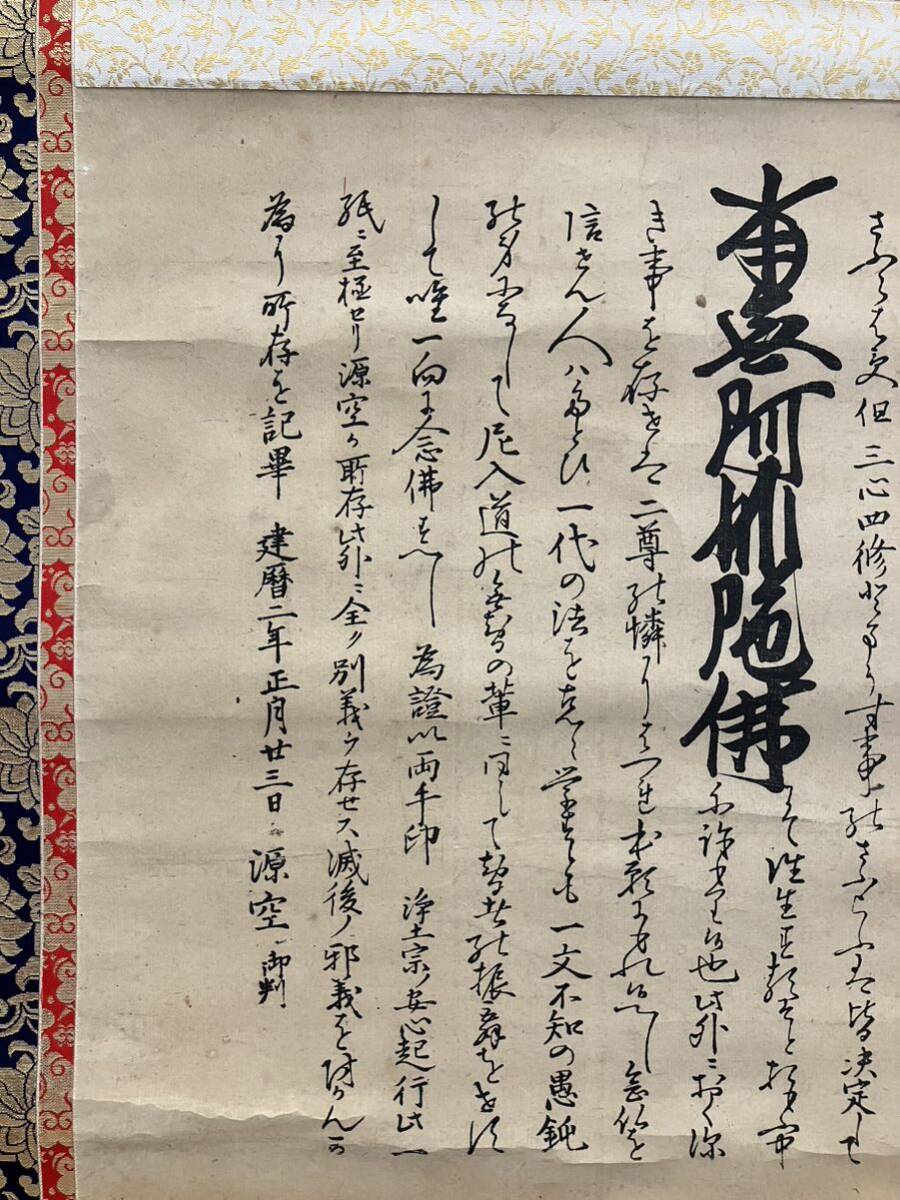 さふらはす但三心四修と申す事のさふらふは皆決定して
南無阿弥陀佛
にて往生するそと おもふ
にこもり候也此外ニおくふか
き事を存せは二尊の憐にはつれ本願にもれ候へし念仏を
信せん人ハたとひ一代の法を能々学すとも一文不知の愚鈍
の身になして尼入道の無智の輩ニ同して智者の振舞をせす
して唯一向に念佛すへし 為證以両手印 浄土宗ノ安心起行此一
紙ニ至極セリ源空カ所存此外ニ全ク別義ヲ存セス滅後ノ邪義をふせかんカ
為に所存を記畢 建暦二年正月廿三日 源空 御判